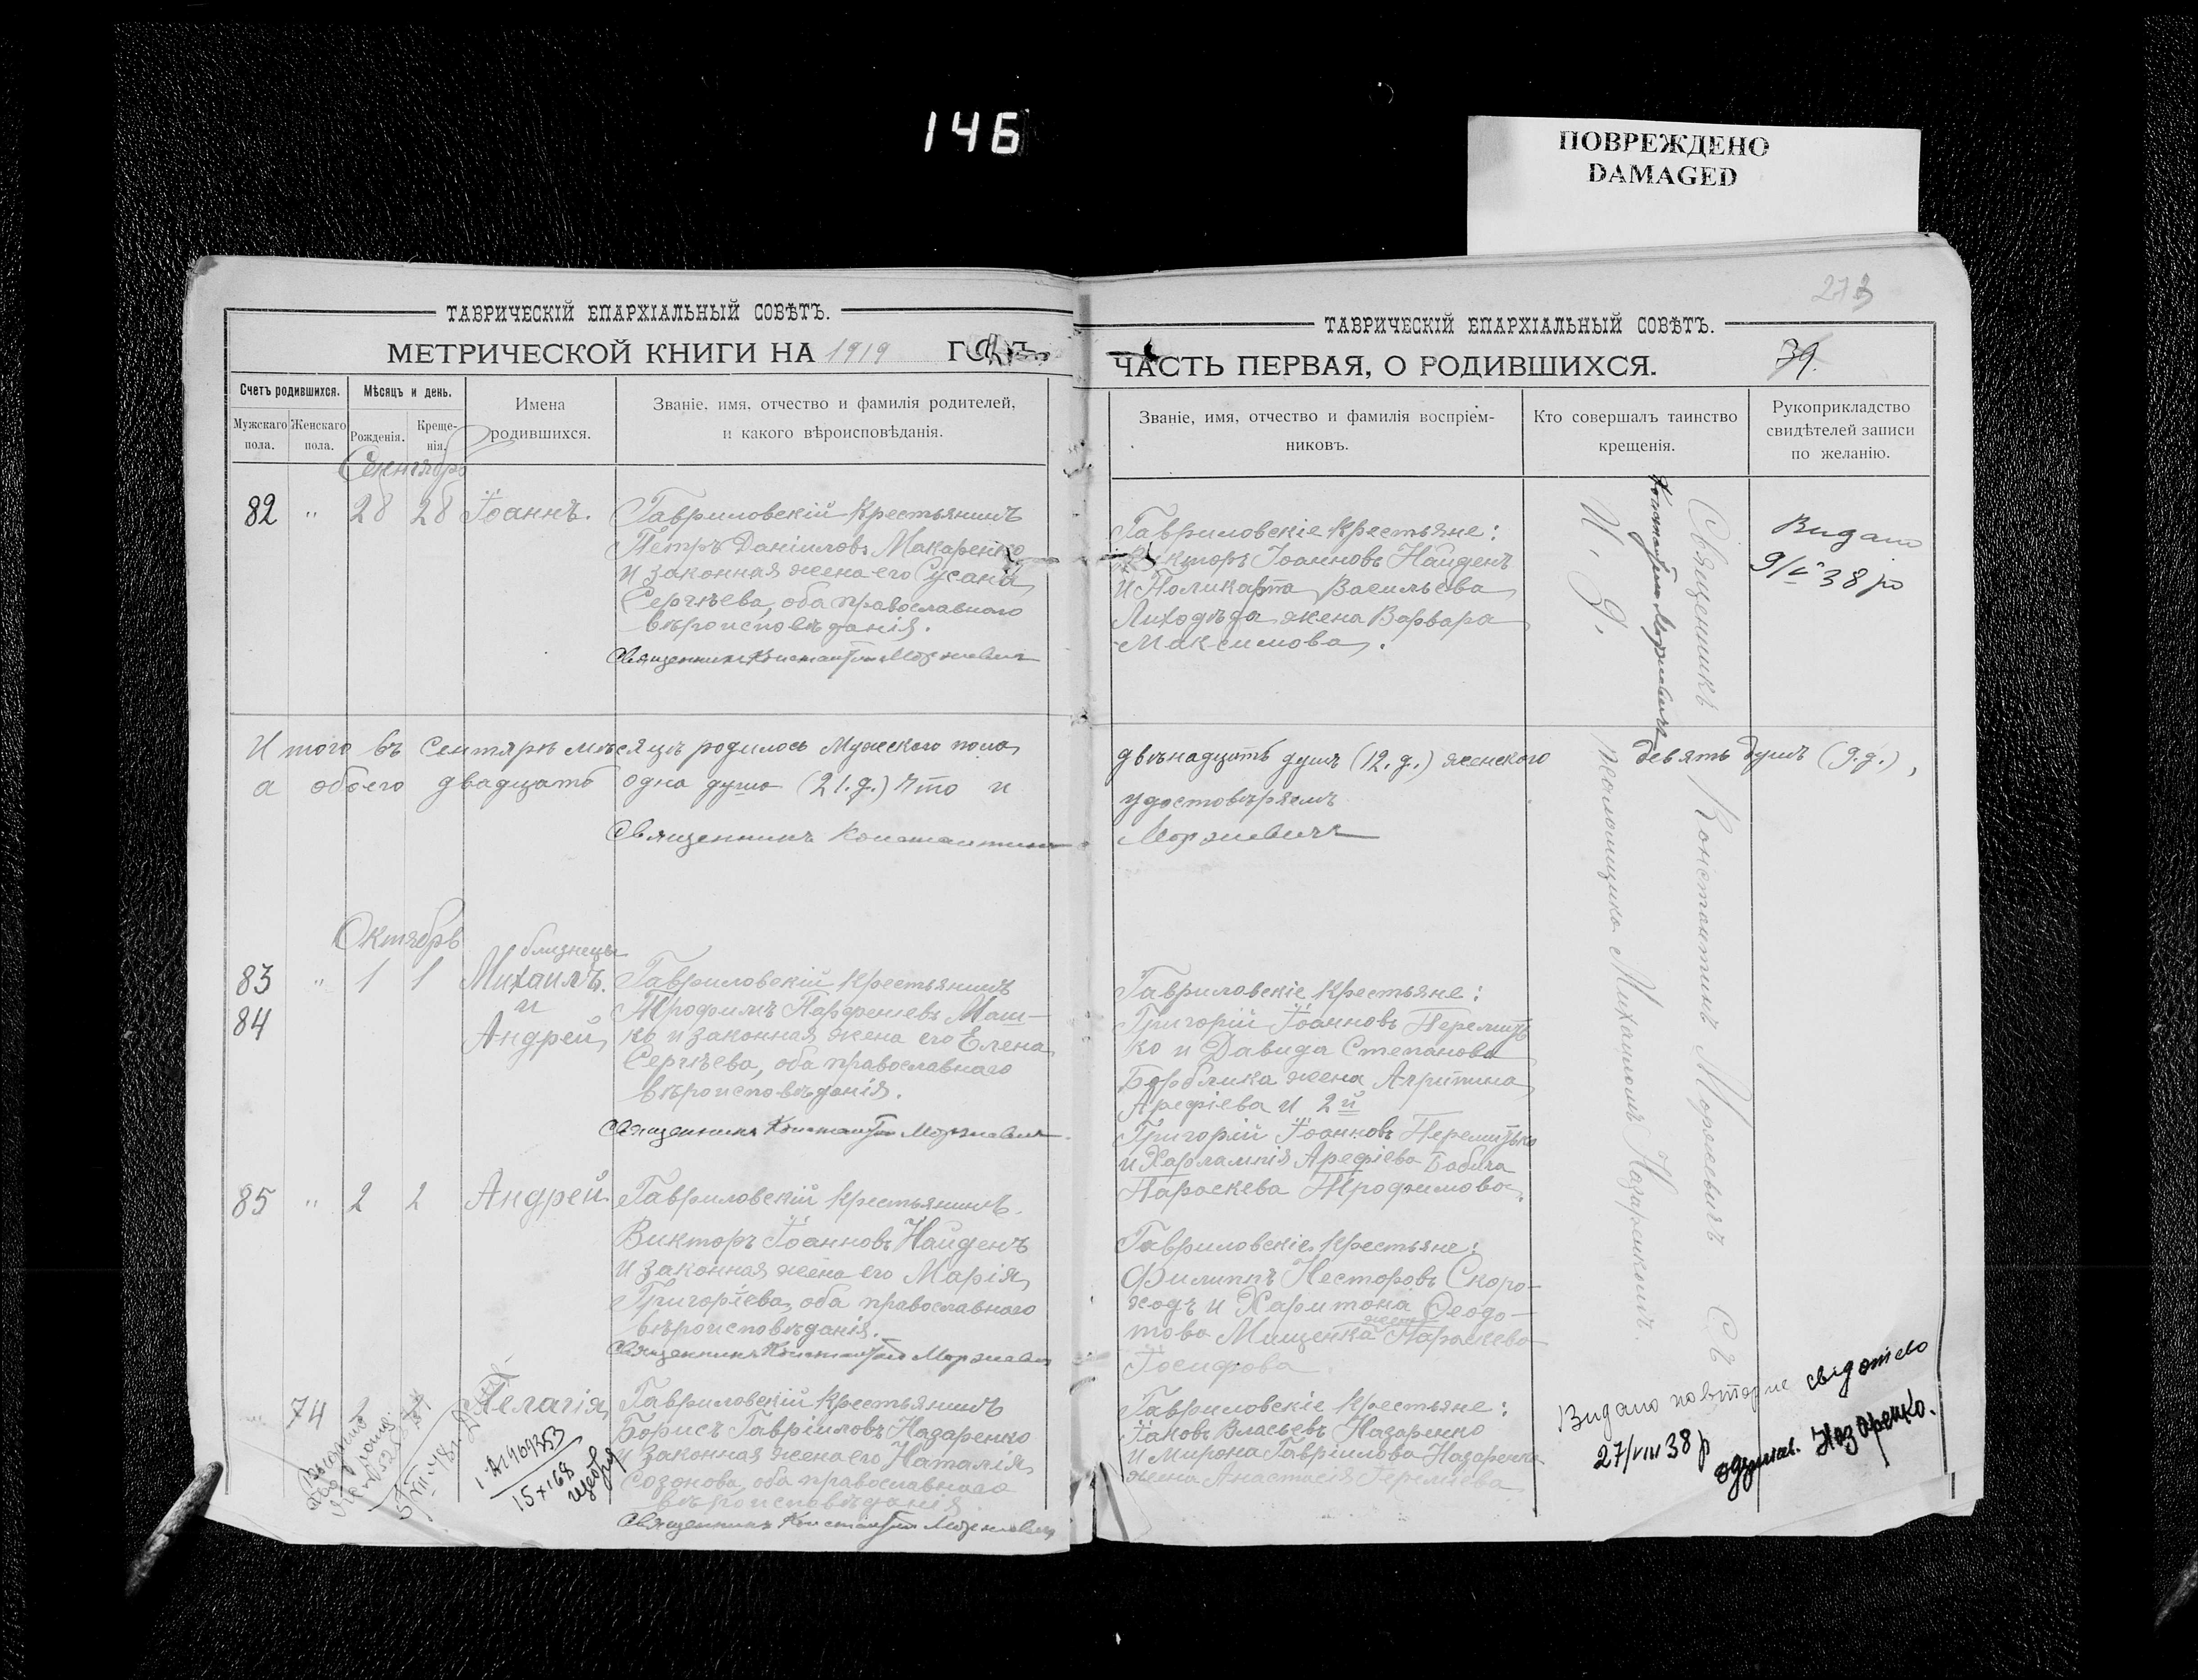 146
ПОВРЕЖДЕНО
DAMAGED
273
ТАВРИЧЕСКІЙ ЕПАРХІАЛЬНЫЙ СОВѢТЪ.
МЕТРИЧЕСКОЙ КНИГИ НА 1919
Счетъ родившихся.
Мужскаго пола.
Женскаго пола.
Мѣсяцъ и день.
Рожденія.
Крещенія.
Имена
родившихся.
Званіе, имя, отчество и фамилія родителей,
и какого вѣроисповѣданія.
Сентябрь
82 " 28 28 Іоаннъ.
Гавриловскій крестьянинъ
Петръ Даніиловъ Макаренко
и законная жена его Сусана
Сергѣева, оба православнаго
вѣроисповѣданія.
Священникъ Константинъ Моржевичъ
Итого въ Сентярѣ мѣсяцѣ родилось мужеского пола
а обоего двадцать одна душа (21.д.) что и
Священникъ Константинъ
Октябрь
близнецы
83 " 1 1 Михаилъ.
и
84 Андрей
Гавриловскій крестьянинъ
Трофимъ Парфеніевъ Маш-
ко и законная жена его Елена
Сергѣева, оба православнаго
вѣроисповѣданія.
Священникъ Константинъ Моржевичъ
85 " 2 2 Андрей
Гавриловскій крестьянинъ
Викторъ Іоанновъ Найденъ
и законная жена его Марія
Григоріева, оба православнаго
вѣроисповѣданія.
Священникъ Константинъ Моржевичъ
74 Пелагія
Гавриловскій крестьянинъ
Борисъ Гавріиловъ Назаренко
и законная жена его Наталія
Созонова, оба православнаго
вѣроисповѣданія
Священникъ Константинъ Моржевичъ
15 X 168
ТАВРИЧЕСКІЙ ЕПАРХІАЛЬНЫЙ СОВѢТЪ.
ЧАСТЬ ПЕРВАЯ, О РОДИВШИХСЯ.
79.
Званіе, имя, отчество и фамилія воспріем-
никовъ.
Кто совершалъ таинство
крещенія.
Рукоприкладство
свидѣтелей записи
по желанію.
Гавриловскіе крестьяне:
Викторъ Іоанновъ Найденъ
и Поликарпа Васильева
Лиходѣда жена Варвара
Максимова.
Видано
9/V 38 р
двѣнадцать душъ (12.д.) женского девять душъ (9.д.),
удостовѣряемъ
Моржевичъ
Гавриловскіе крестьяне:
Григорій Іоанновъ Перемитько
ко и Давида Степанова
жена Агрипина
Арефіева и 2й
Григорій Іоанновъ Перемитько
и Харлампія Арефіева Бабича
Параскева Трофимова.
Гавриловскіе крестьяне:
Филиппъ Несторовъ Скоро-
ходъ и Харитона Феодо-
това Мищенка жена Параскева
Іосифова
Гавриловскіе крестьяне:
Іаковъ Власьевъ Назаренко
и Мирона Гавріилова Назаренка
жена Анастасія
Священникъ Константинъ Моржевичъ Съ
псаломщикомъ Михаиломъ
И. Д.
Константинъ Моржевичъ
Видано повторне свідотство
27/VIII 38 р
Назаренко.